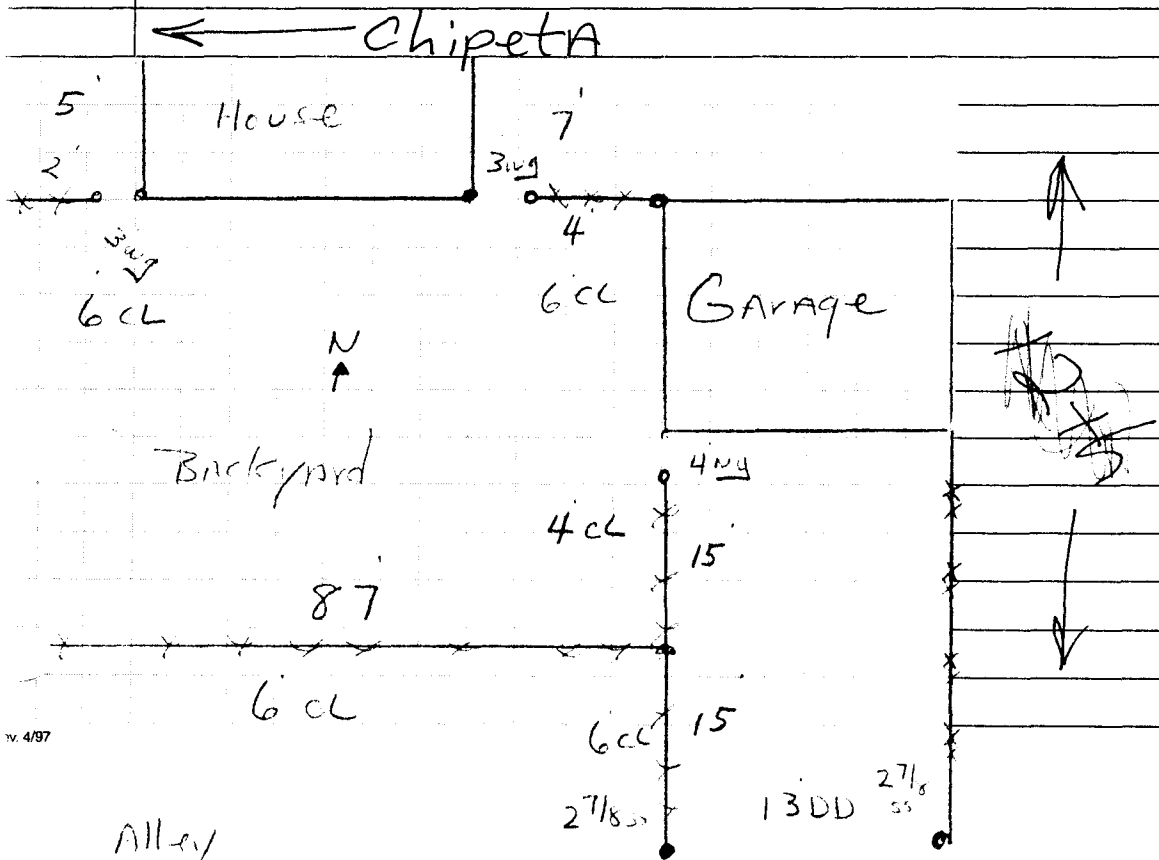 ChipetA
5'
House
7'
2'
3wg
4'
3wg
6' CL
6' CL
GArAge
N
BAckyArd
4wg
4' CL
15'
87'
6' CL
15'
6' CL
v. 4/97
2 7/8 ss
13' DD
2 7/8 ss
Alley